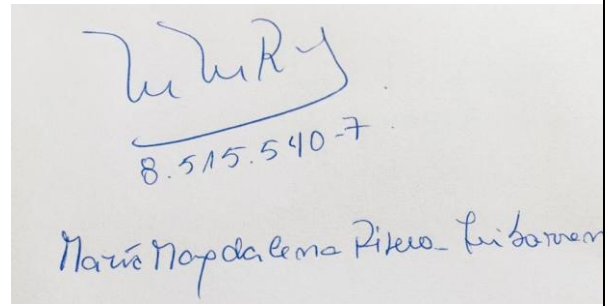 MMRY
8.515.540-7
María Magdalena Piñero-Iribarren